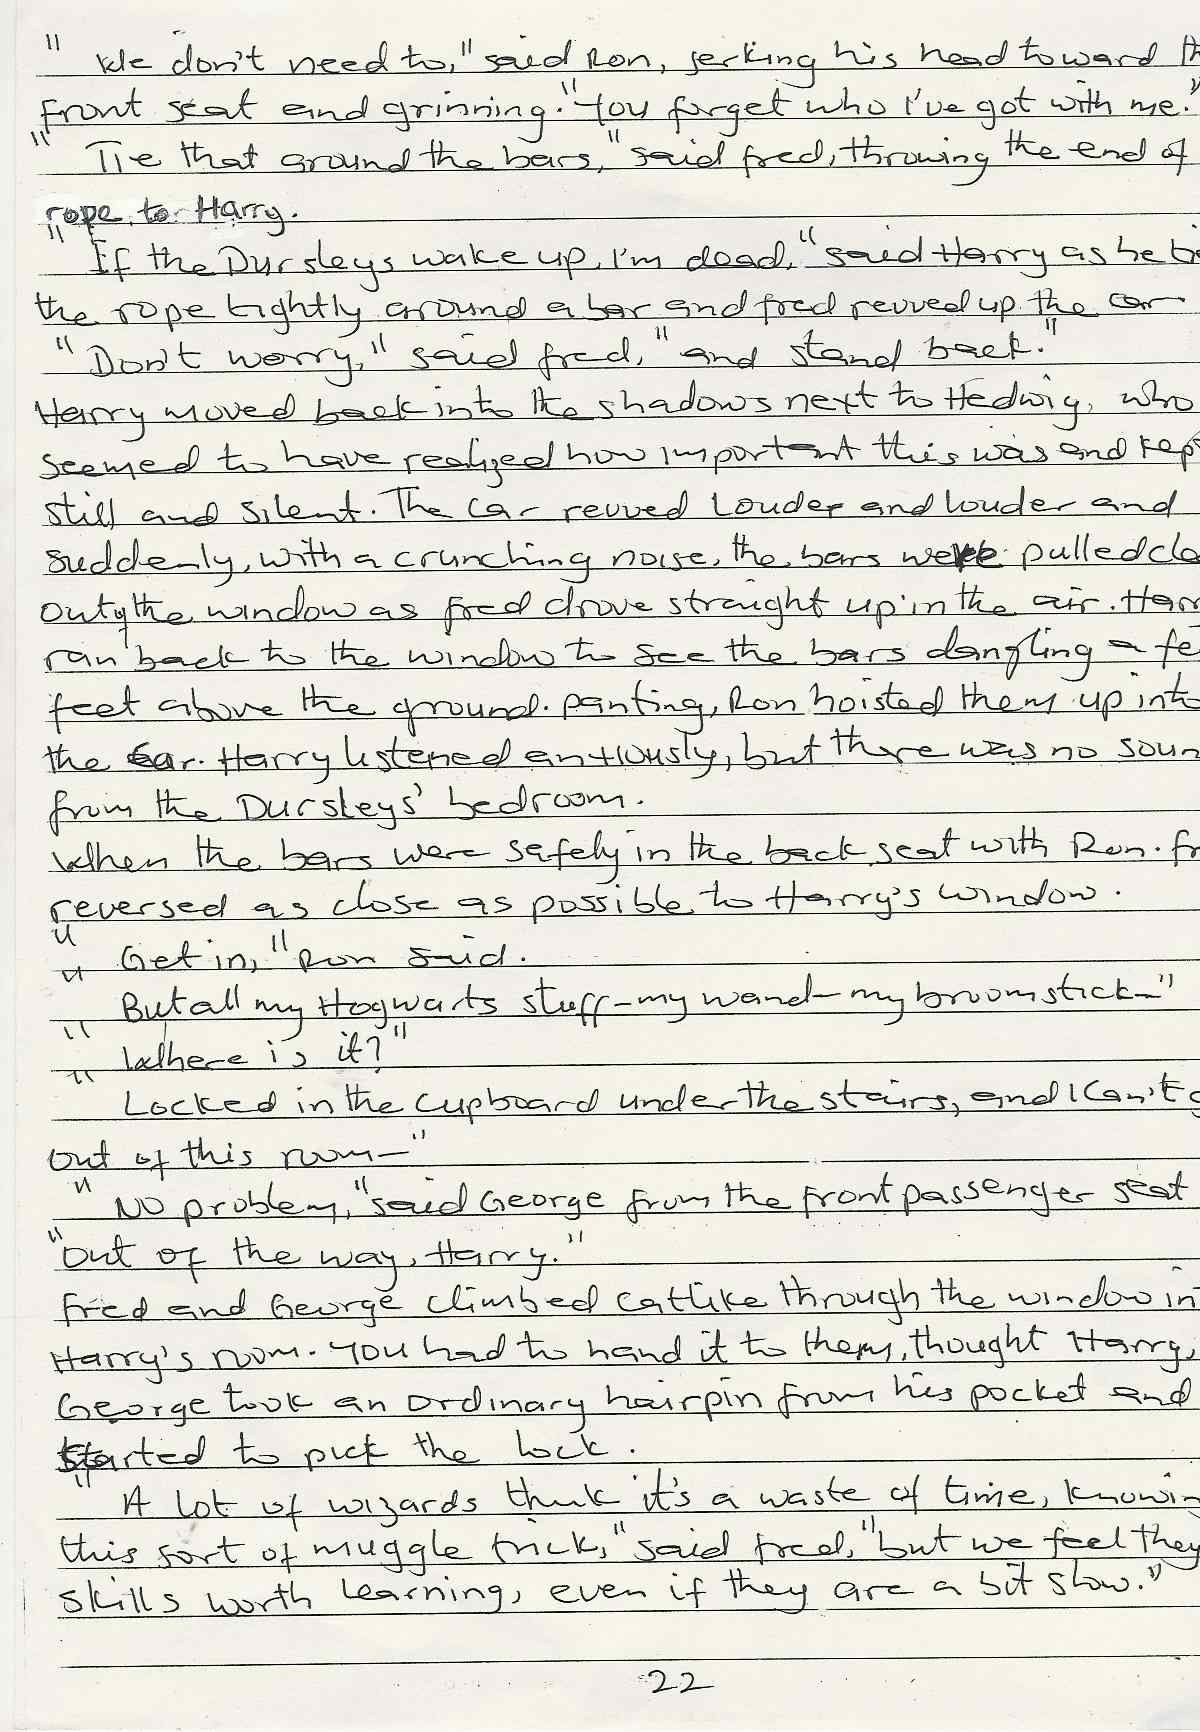 "We don't need to," said Ron, jerking his head toward th
front seat and grinning. "You forget who I've got with me."
"Tie that around the bars," said fred, throwing the end of
rope to Harry.
"If the Dursleys wake up, I'm dead," said Harry as he ti
the rope tightly around a bar and fred revved up the car
"Don't worry," said fred, "and stand back."
Harry moved back into the shadows next to Hedwig, who
seemed to have realized how important this was and kep
still and silent. The car revved Louder and louder and
suddenly, with a crunching noise, the bars were pulled clea
out of the window as fred drove straight up in the air. Harr
ran back to the window to see the bars dangling a fe
feet above the ground. panting, Ron hoisted them up into
the car. Harry listened anxiously, but there was no soun
from the Dursleys' bedroom.
When the bars were safely in the back seat with Ron. fr
reversed as close as possible to Harry's window.
"Get in," Ron said.
"But all my Hogwarts stuff—my wand—my broomstick—"
"Where is it?"
"Locked in the cupboard under the stairs, and I can't g
out of this room—"
"No problem," said George from the front passenger seat
"Out of the way, Harry."
Fred and George climbed catlike through the window in
Harry's room. You had to hand it to them, thought Harry,
George took an ordinary hairpin from his pocket and
started to pick the lock.
"A lot of wizards think it's a waste of time, knowin
this sort of muggle trick," said fred, "but we feel they
skills worth learning, even if they are a bit slow."
22